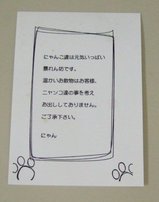 にゃんこ達は元気いっぱい
暴れん坊です。
温かいお飲物はお客様、
ニャンコ達の事を考え
お出ししておりません。
ご了承下さい。
にゃん